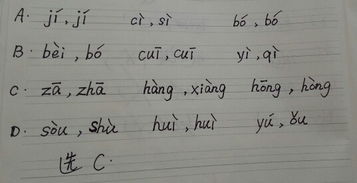 A. jí, jí cì, sì bó, bó
B. bèi, bó cuī, cuī yì, qì
C. zā, zhā hàng, xiàng hōng, hòng
D. sòu, shù huì, huì yú, ǒu
选 C.